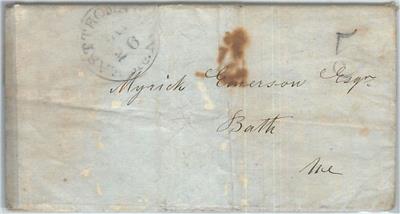 6
Myrick Emerson Esqr
Bath
Me